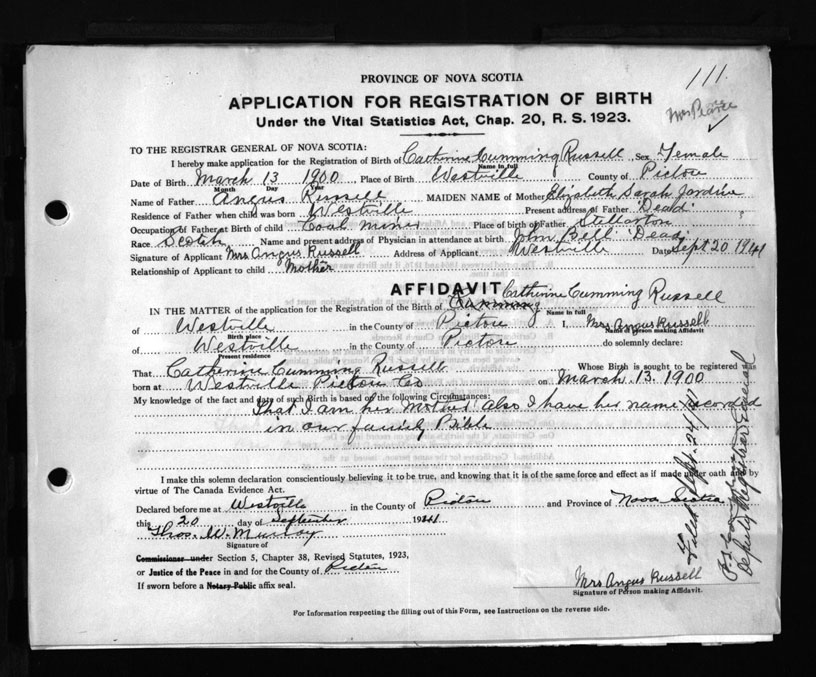 111.
PROVINCE OF NOVA SCOTIA
Mrs Pearce
APPLICATION FOR REGISTRATION OF BIRTH
Under the Vital Statistics Act, Chap. 20, R. S. 1923.
TO THE REGISTRAR GENERAL OF NOVA SCOTIA:
I hereby make application for the Registration of Birth of Catherine Cumming Russell Sex Female
Name in full
Date of Birth March 13 1900 Place of Birth Westville County of Pictou
Month Day Year
Name of Father Angus Russell MAIDEN NAME of Mother Elizabeth Sarah Jardine
Residence of Father when child was born Westville Present address of Father "Dead"
Occupation of Father at Birth of Child Coal miner Place of birth of Father Stellarton
Race Scotish Name and present address of Physician in attendance at birth John Bell "Dead"
Signature of Applicant Mrs Angus Russell Address of Applicant Westville Date Sept 20 1941
Relationship of Applicant to child Mother
AFFIDAVIT
IN THE MATTER of the application for the Registration of the Birth of Catherine Cumming Russell
Name in full
of Westville in the County of Pictou I, Mrs Angus Russell
Birth place Name of Person making Affidavit
of Westville in the County of Pictou do solemnly declare:
Present residence
That Catherine Cumming Russell Whose Birth is sought to be registered was
born at Westville Pictou Co on March 13 1900
My knowledge of the fact and date of such Birth is based on the following Circumstances:
That I am her Mother also I have her name recorded
in our family Bible
I make this solemn declaration conscientiously believing it to be true, and knowing that it is of the same force and effect as if made under oath and by
virtue of The Canada Evidence Act.
Declared before me at Westville in the County of Pictou and Province of Nova Scotia
this 20 day of September 1941
Thos. W. Murray
Signature of
Commissioner under Section 5, Chapter 38, Revised Statutes, 1923,
or Justice of the Peace in and for the County of Pictou
If sworn before a Notary Public affix seal.
Mrs Angus Russell
Signature of Person making Affidavit.
For Information respecting the filling out of this Form, see Instructions on the reverse side.
Filed Sept. 24/41
Deputy Registrar General